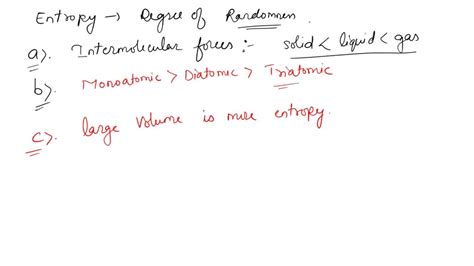 Entropy → Degree of Randomness.
a). Intermolecular forces :- solid < liquid < gas
b). Monoatomic > Diatomic > Triatomic
c). large volume is more entropy.